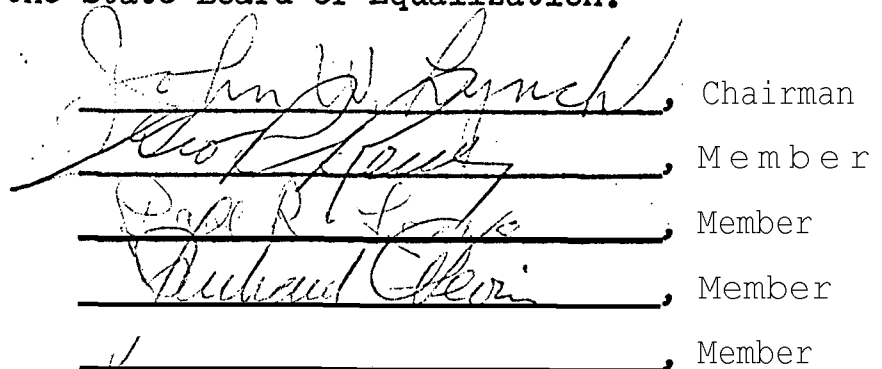 the State Board of Equalization.
John W. Lynch, Chairman
Geo R Reilly, Member
Paul R. Leake, Member
Richard Nevins, Member
, Member